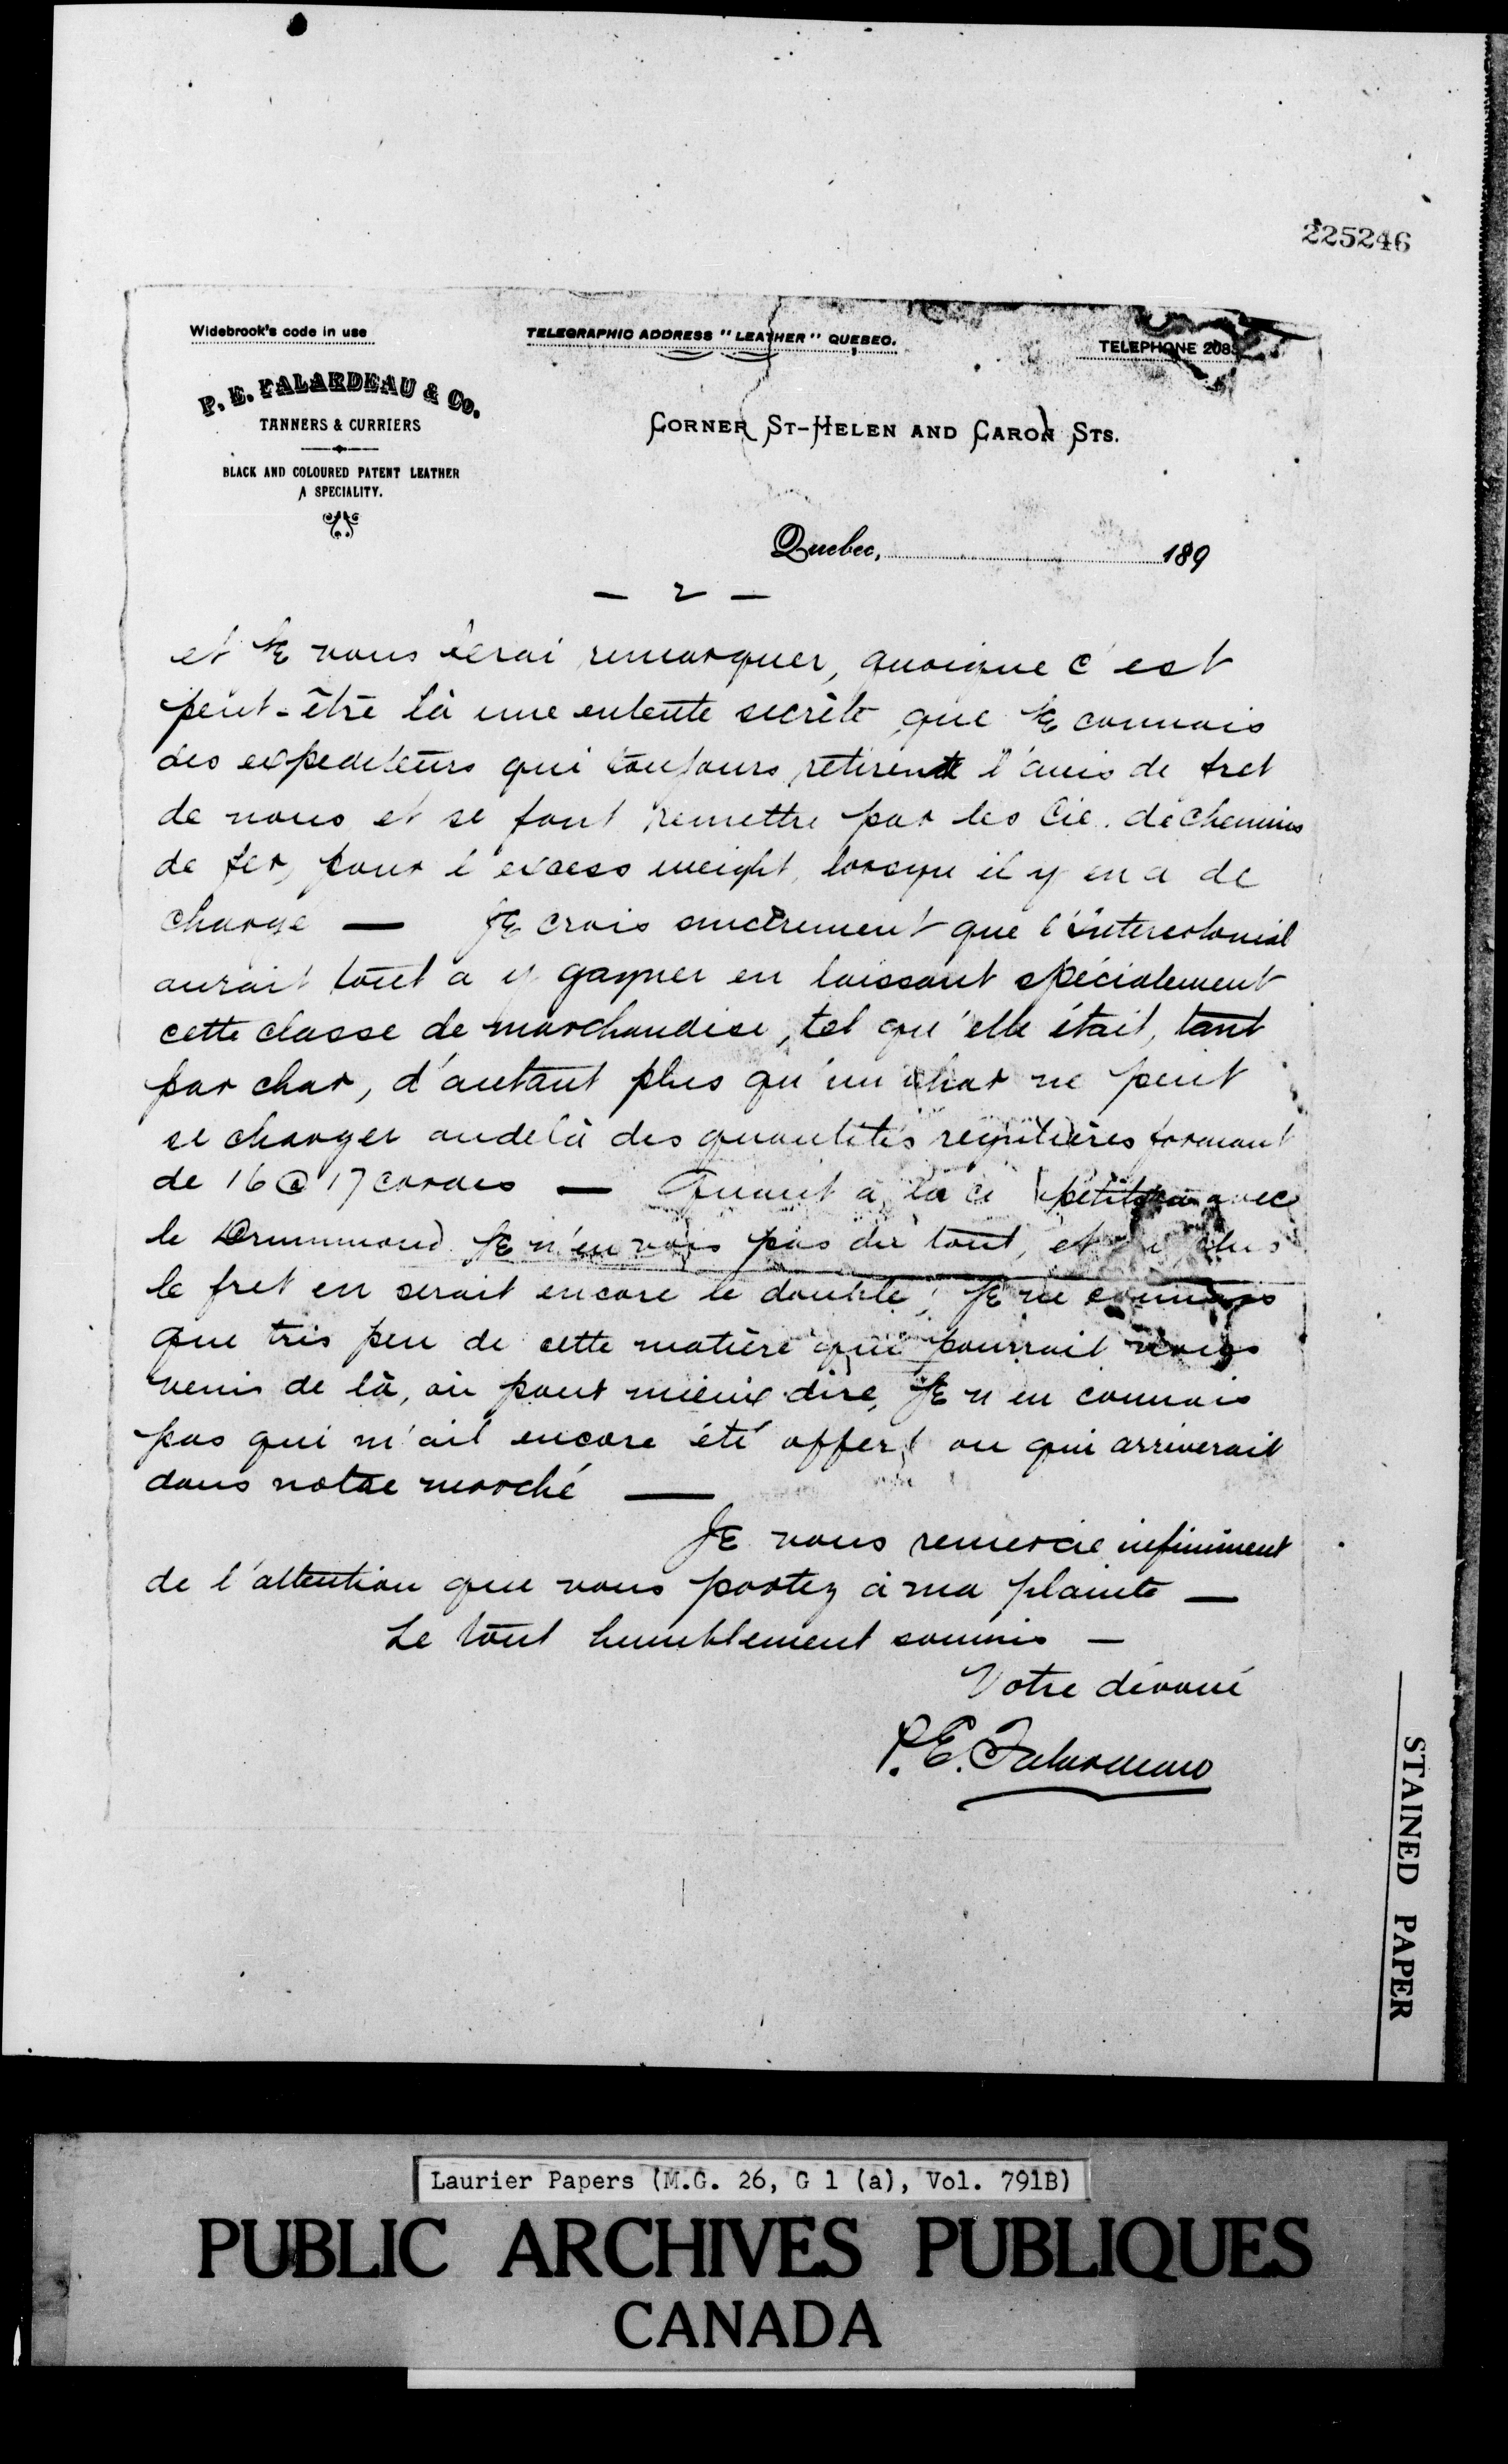 225246
Widebrook's code in use
TELEGRAPHIC ADDRESS "LEATHER" QUEBEC.
TELEPHONE 208
P. E. FALARDEAU & Co.
TANNERS & CURRIERS
BLACK AND COLOURED PATENT LEATHER
A SPECIALITY.
CORNER ST-HELEN AND CARON STS.
Quebec, 189
— 2 —
et Je vous ferai remarquer, quoique c'est
peut-être là une entente secrète, que Je connais
des expediteurs qui toujours retirent l'avis de fret
de nous et se font remettre par les Cie. de Chemins
de fer, pour l'excess weight, lorsque il y en a de
chargé — Je crois sincèrement que l'intercolonial
aurait tout a y gagner en laissant spécialement
cette classe de marchandise, tel qu'elle était, tant
par char, d'autant plus qu'un char ne peut
se charger audelà des quantités régulières formant
de 16 @ 17 cordes — Quant à la avec
le Drummond Je n'en vois pas du tout, et de plus
le fret en serait encore le double, Je ne connais
que très peu de cette matière qui pourrait nous
venir de là, où pour mieux dire, Je n'en connais
pas qui m'ait encore été offert ou qui arriverait
dans notre marché —
Je vous remercie infiniment
de l'attention que vous portez à ma plainte —
Le tout humblement soumis —
Votre dévoué
P. E. Falardeau
STAINED PAPER
Laurier Papers (M.G. 26, G 1 (a), Vol. 791B)
PUBLIC ARCHIVES PUBLIQUES
CANADA